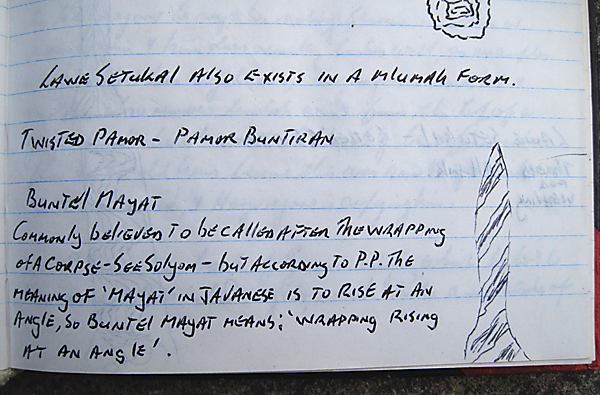 Lawe Setukal also exists in a mlumah form.
Twisted Pamor - Pamor Buntiran
Buntel Mayat
Commonly believed to be called after the wrapping
of a corpse - see Solyom - but according to P.P. the
meaning of 'mayat' in Javanese is to rise at an
angle, so Buntel Mayat means; 'wrapping rising
at an angle'.